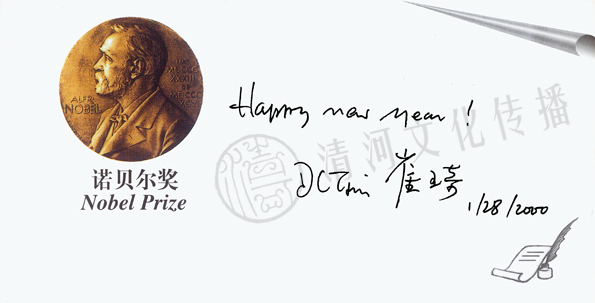 ALFR.
NOBEL
诺贝尔奖
Nobel Prize
Happy new year!
DCTsui 崔琦
1/28/2000
清河文化传播